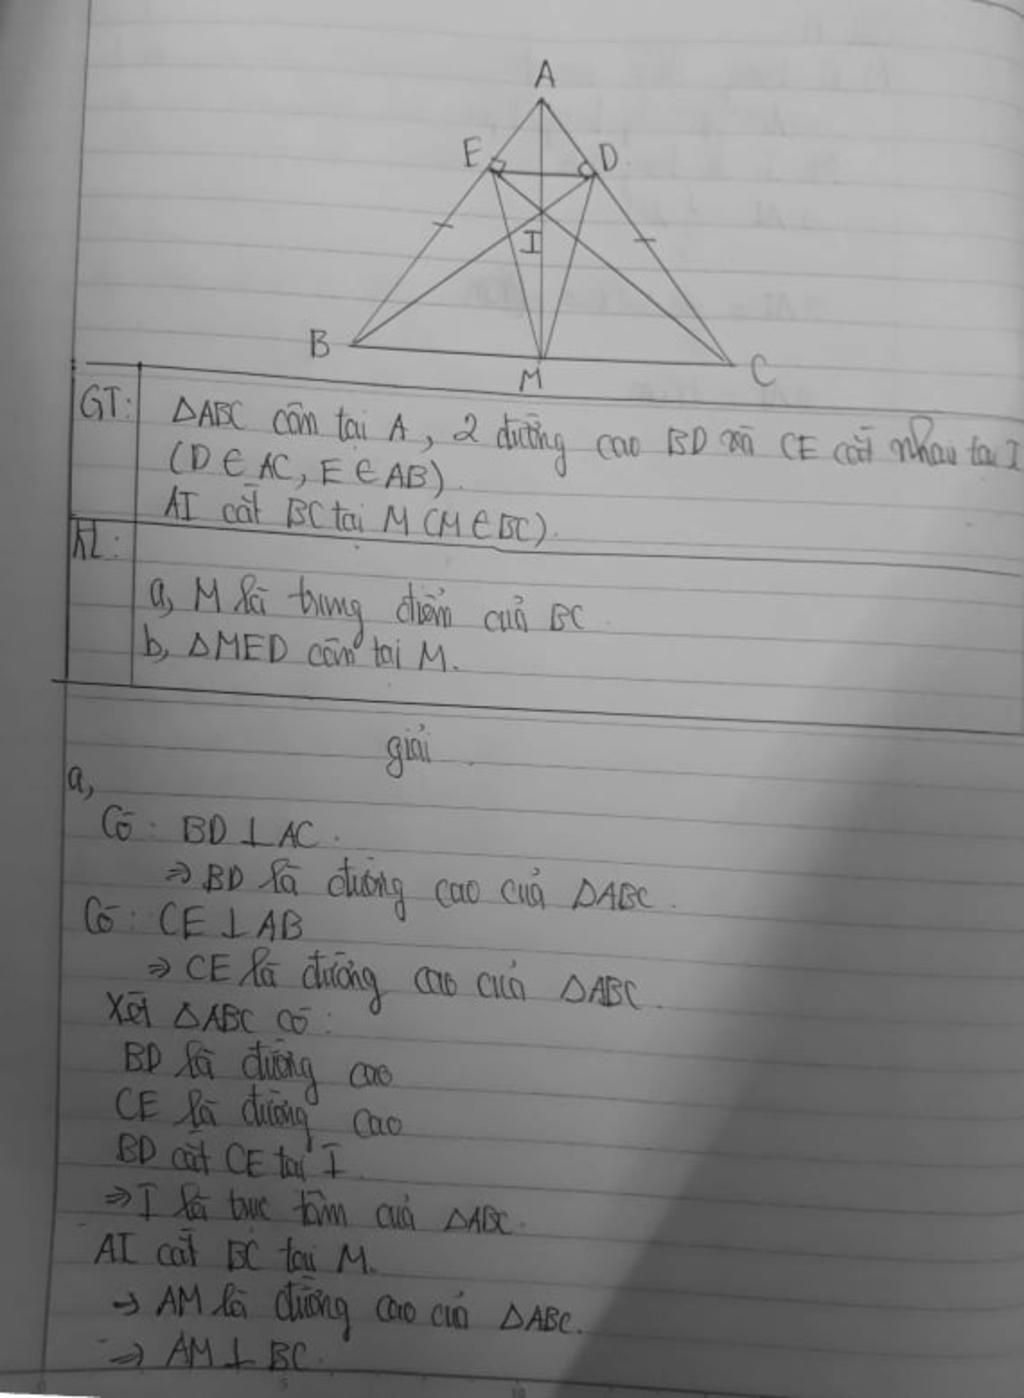 A
E
D
I
B
M
C
GT:
ΔABC cân tại A, 2 đường cao BD và CE cắt nhau tại I
(D ∈ AC, E ∈ AB).
AI cắt BC tại M (M ∈ BC).
KL:
a, M là trung điểm của BC
b, ΔMED cân tại M.
giải
a,
Có: BD ⊥ AC.
⇒ BD là đường cao của ΔABC.
Có: CE ⊥ AB
⇒ CE là đường cao của ΔABC.
Xét ΔABC có:
BD là đường cao
CE là đường cao
BD cắt CE tại I
⇒ I là trực tâm của ΔABC.
AI cắt BC tại M.
→ AM là đường cao của ΔABC.
⇒ AM ⊥ BC.